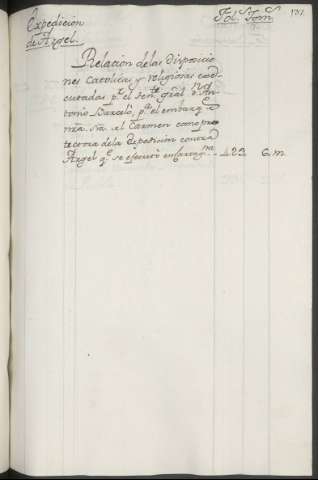 Expedicion
de Argel.
Fol.s Tom.s
137.
Relacion de las Disposicio
nes Catolicas y religiosas exe
cutadas p.r el ten.te gral D.n An
tonio Barceló, p.a el embarq.e
nra. Sra. del Carmen como pro
tectora dela Expedicion contra
Argel q.e se executó en Cartag.na - 423 6. m